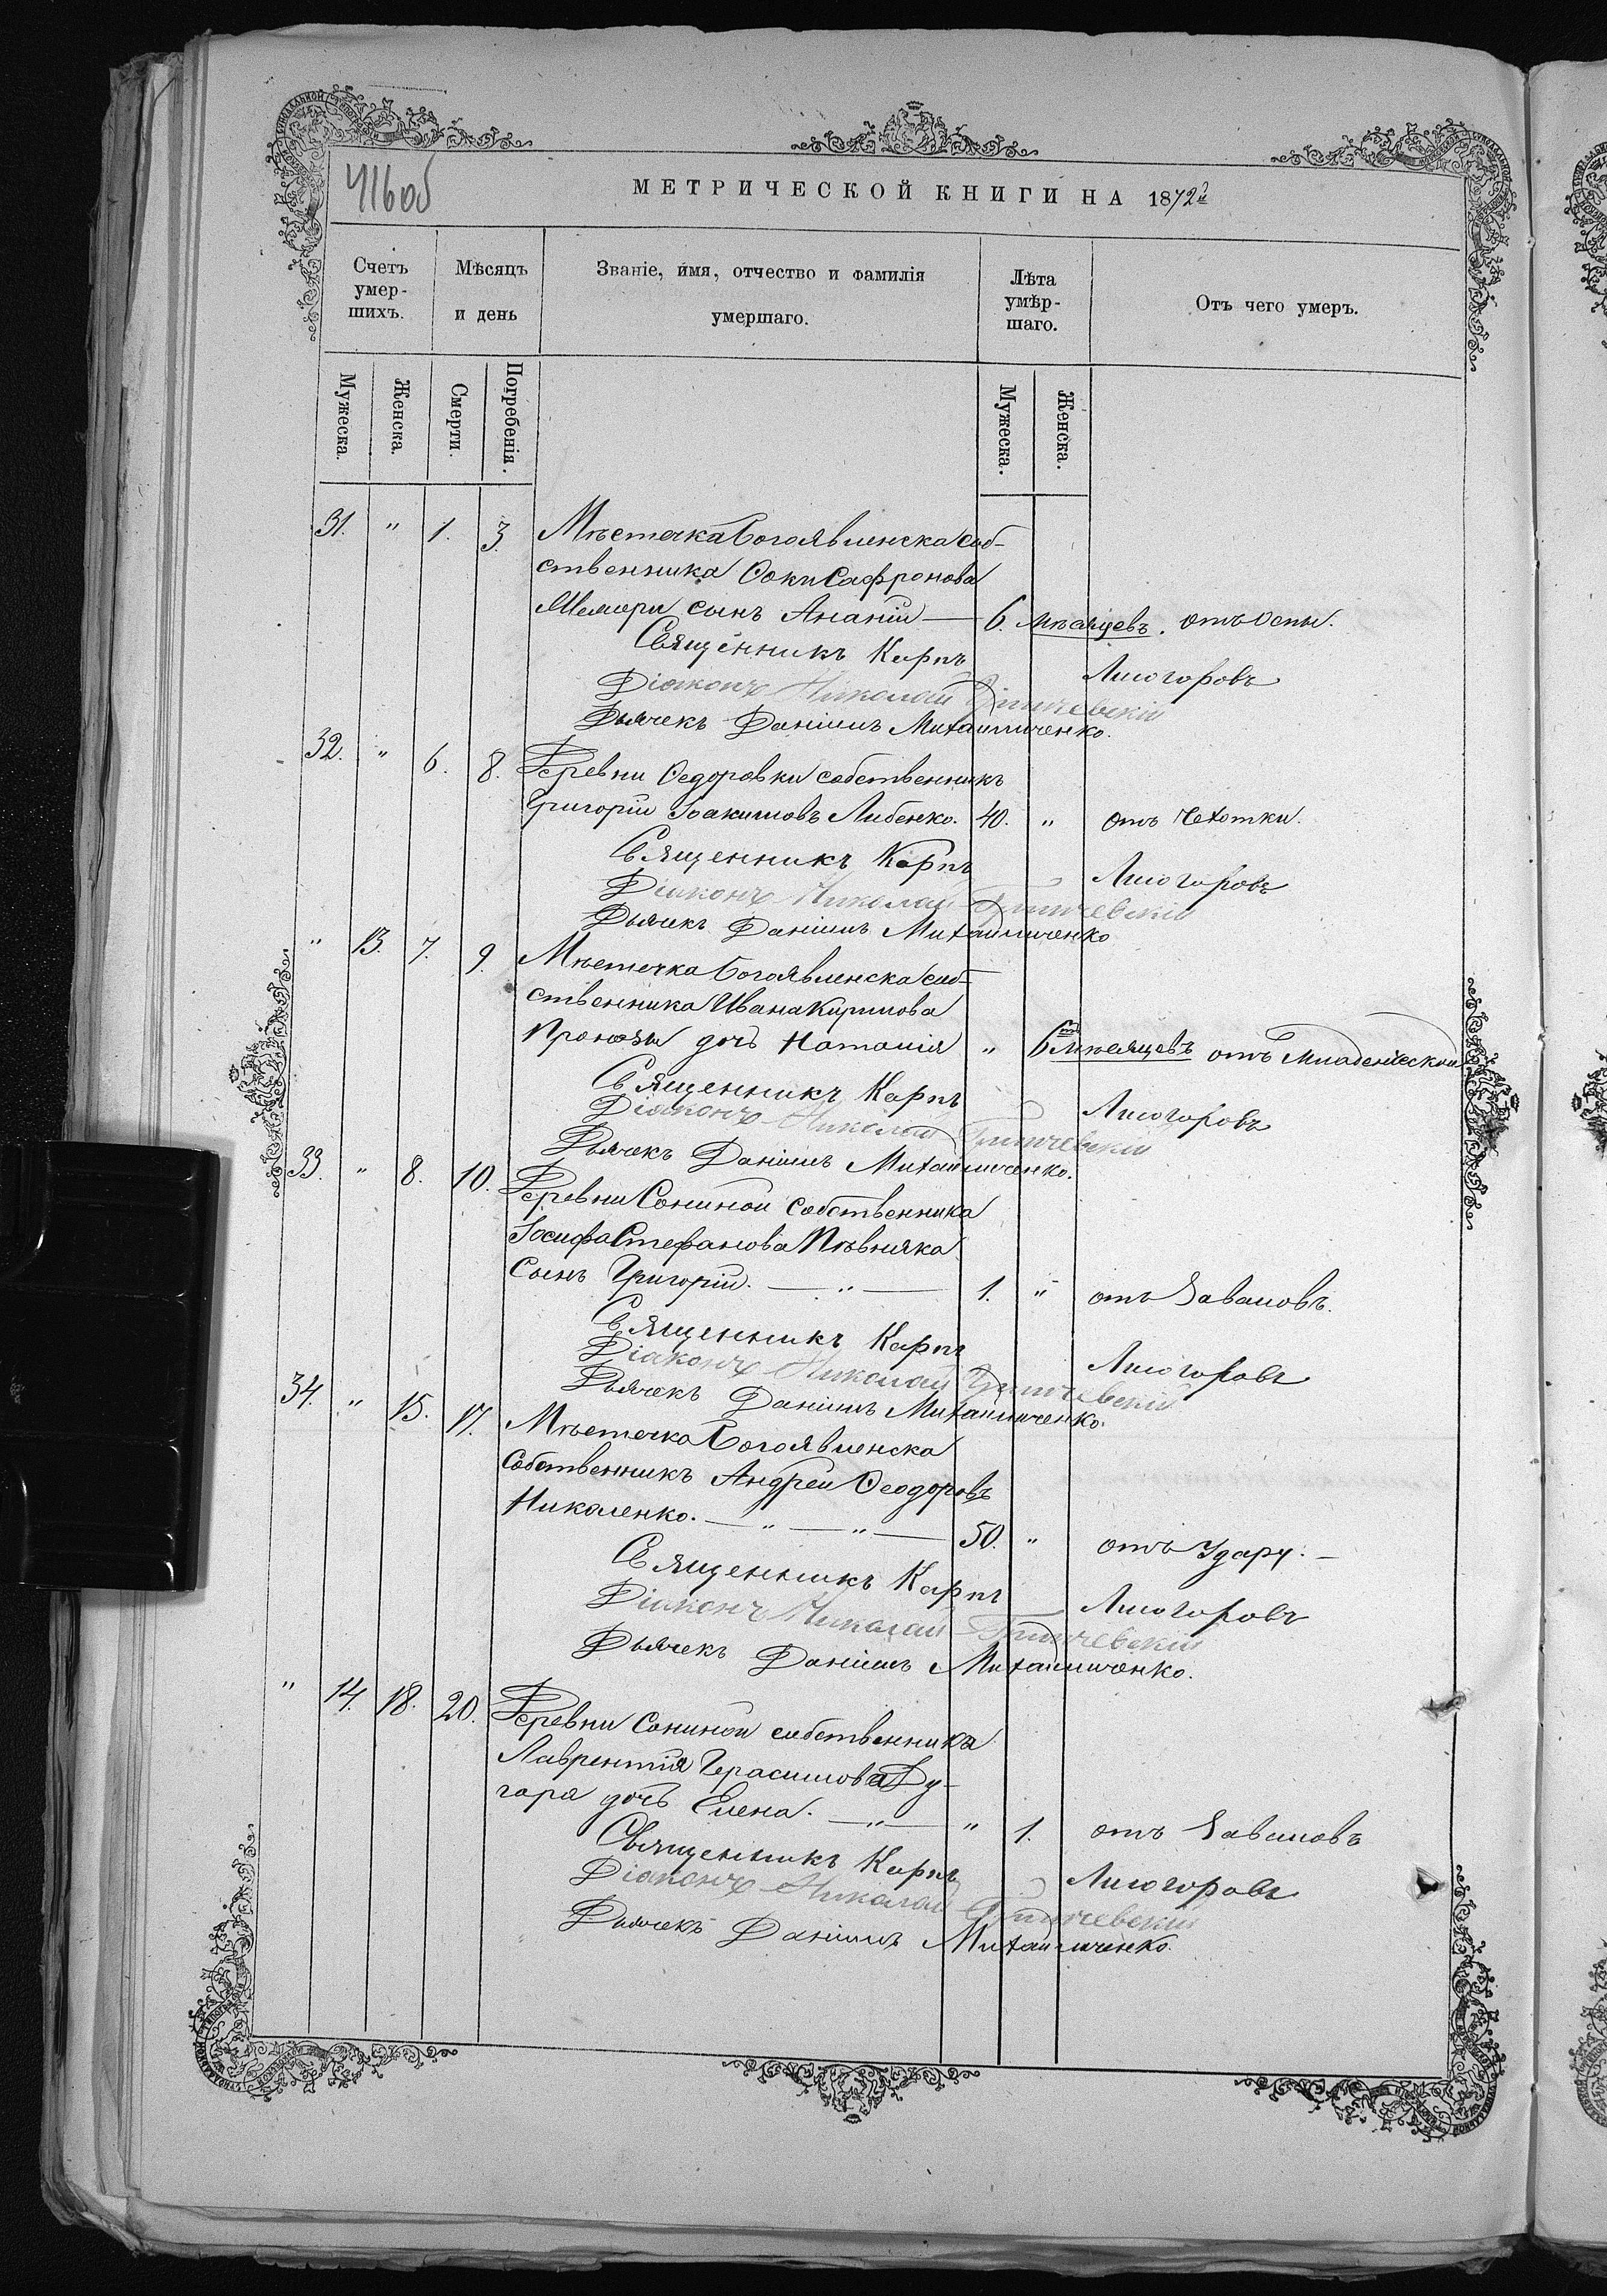 416об
МЕТРИЧЕСКОЙ КНИГИ НА 1872й
Счетъ умер-шихъ.
Мѣсяцъ и день
Званіе, имя, отчество и фамилія умершаго.
Лѣта умѣр-шаго.
Отъ чего умеръ.
Мужеска. Женска. Смерти. Погребенія. Мужеска. Женска.
31. " 1. 3. Мѣстечка Богоявленска соб-
ственника Ѳоки Сафронова
сынъ Ананій — 6. мѣсяцевъ. отъ Оспы.
Священникъ Карпъ Лисогоровъ
Діаконъ Николай
Дьячекъ Даніилъ Михайличенко.
32. " 6. 8. Деревни Ѳедоровки собственникъ
Григорій Іоакимовъ Либенко. 40. " отъ Чехотки.
Священникъ Карпъ Лисогоровъ
Діаконъ Николай
Дьячекъ Даніилъ Михайличенко
" 13. 7. 9. Мѣстечка Богоявленска соб-
ственника Ивана Кирилова
Пронозы дочь Наталія " 6ти мѣсяцевъ отъ Младенческой
Священникъ Карпъ Лисогоровъ
Діаконъ Николай
Дьячекъ Даніилъ Михайличенко.
33. " 8. 10. Деревни Сониной собственника
Іосифа Стефанова Пѣвняка
Сынъ Григорій. — " — 1. " отъ Заваловъ.
Священникъ Карпъ Лисогоровъ
Діаконъ Николай
Дьячекъ Даніилъ Михайличенко.
34. " 15. 17. Мѣстечка Богоявленска
Собственникъ Андрей Ѳеодоровъ
Николенко. — " — " — 50. " отъ Удару. —
Священникъ Карпъ Лисогоровъ
Діаконъ Николай
Дьячекъ Даніилъ Михайличенко.
" 14. 18. 20. Деревни Сониной собственника
Лаврентія Герасимова Ду-
гаря дочь Елена. — " — " 1. отъ Заваловъ
Священникъ Карпъ Лисогоровъ
Діаконъ Николай
Дьячекъ Даніилъ Михайличенко.